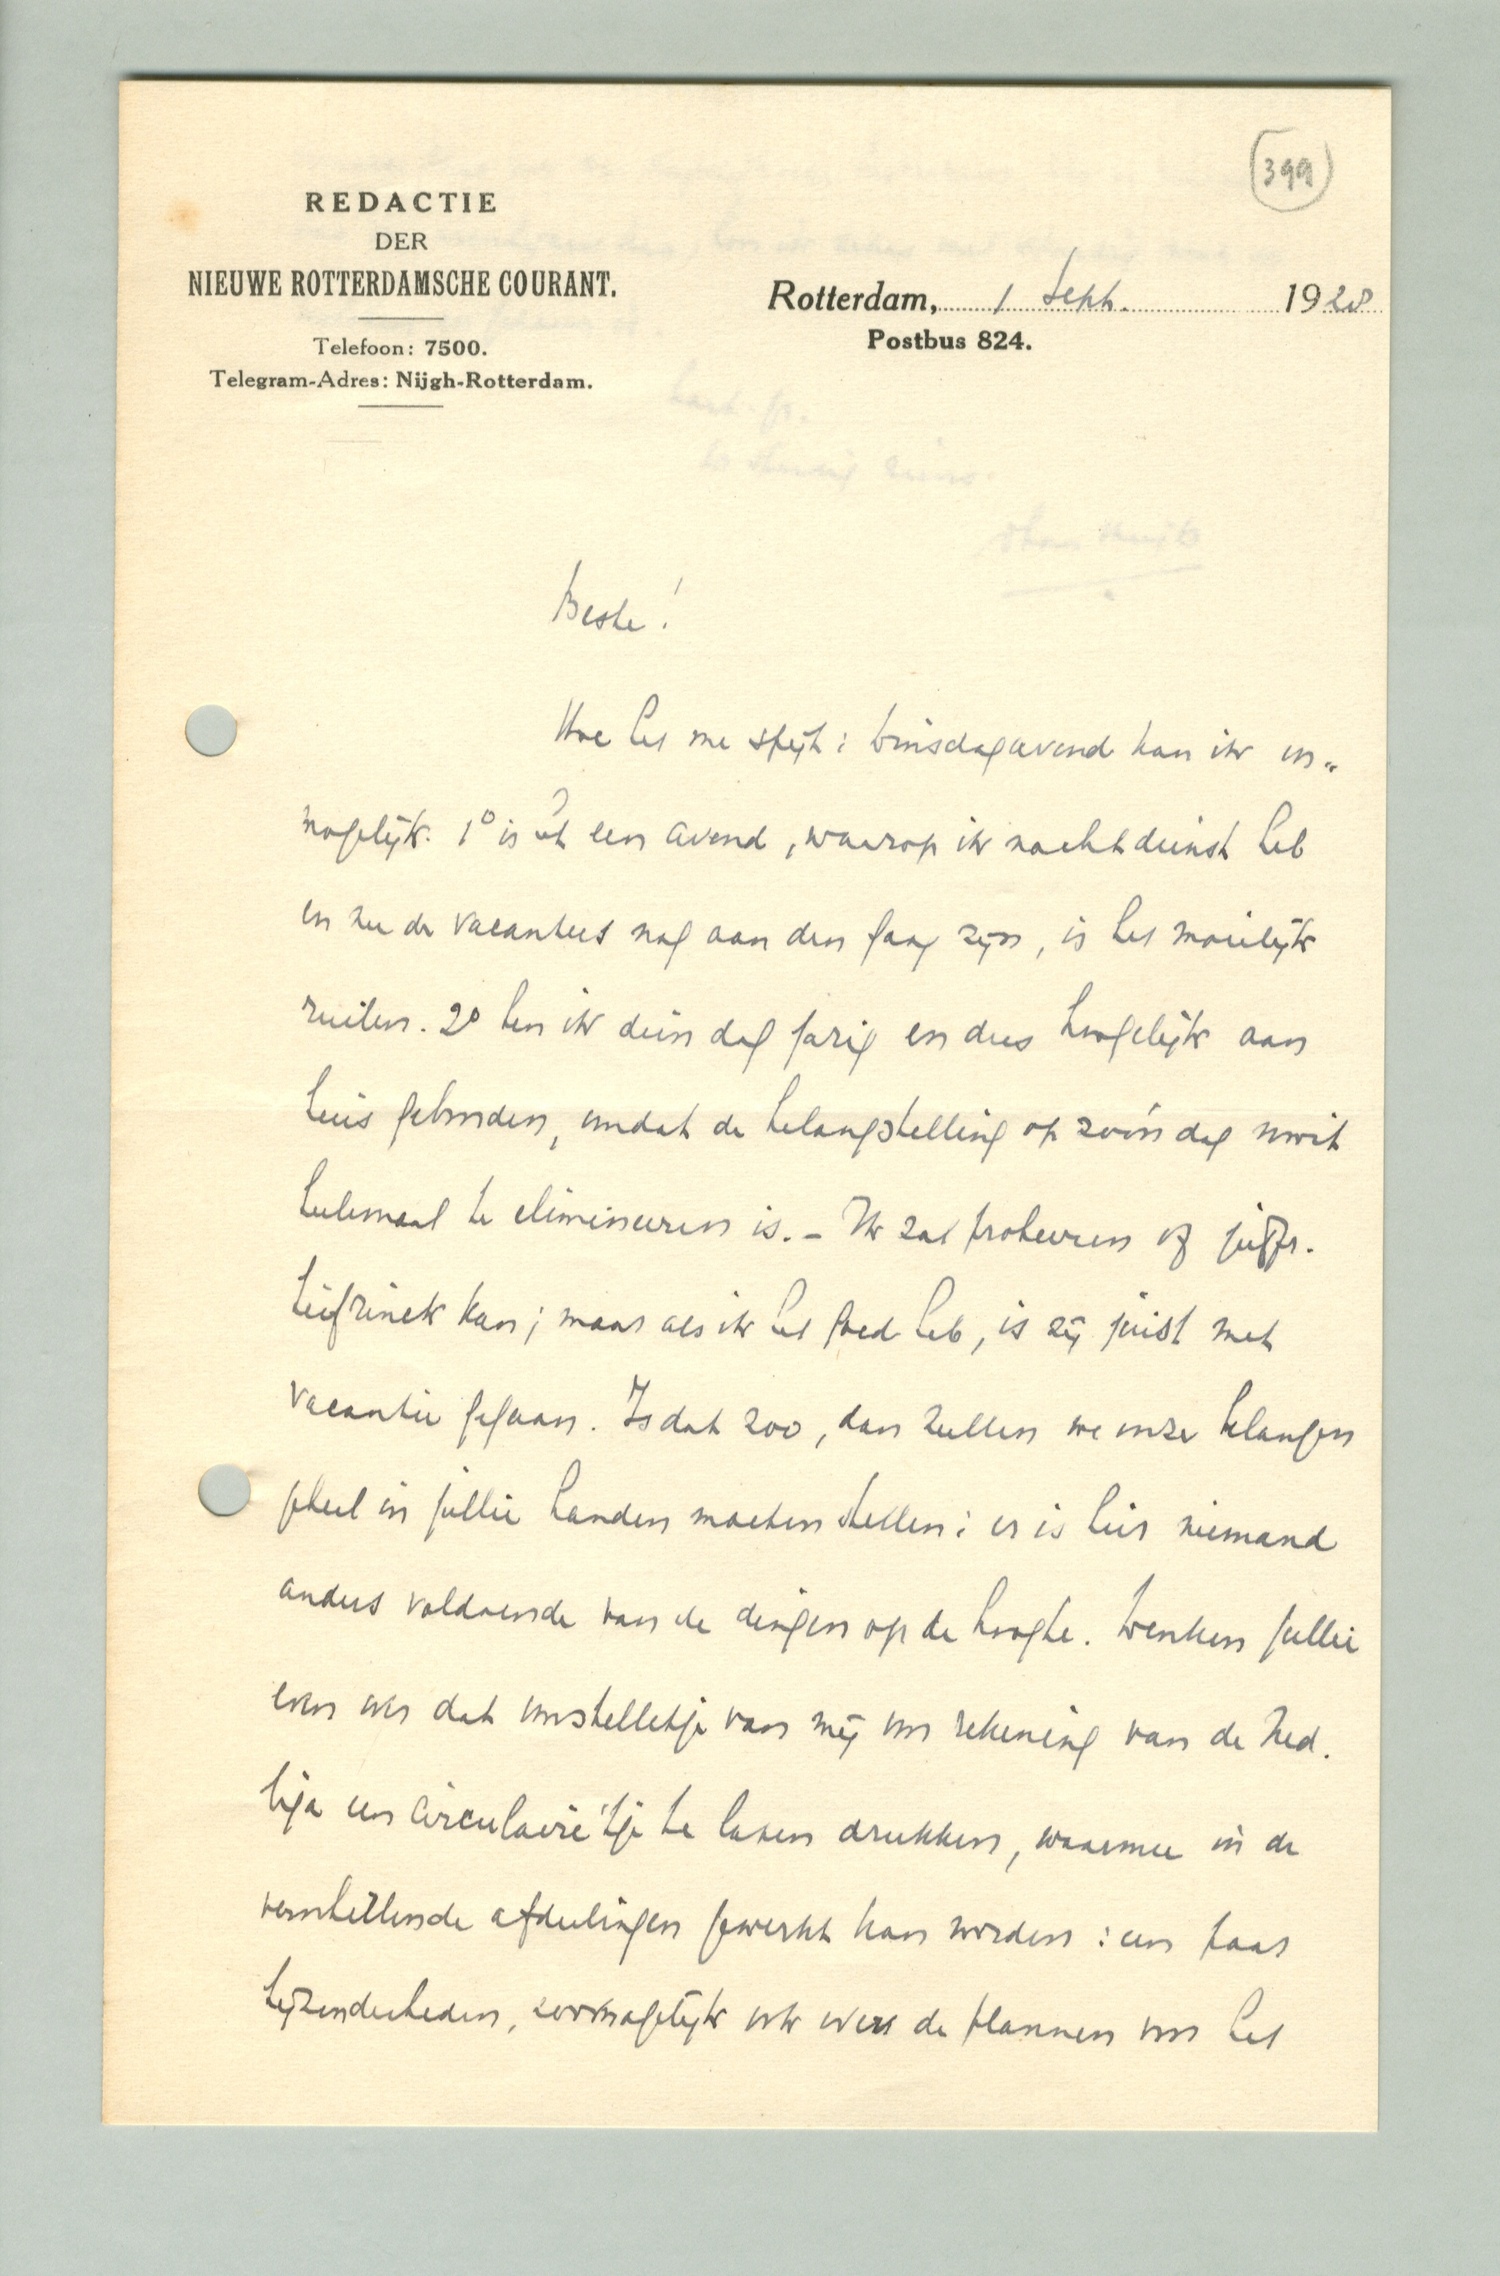 (399)
REDACTIE
DER
NIEUWE ROTTERDAMSCHE COURANT.
Telefoon: 7500.
Telegram-Adres: Nijgh-Rotterdam.
Rotterdam, 1 Sept. 1928
Postbus 824.
Beste!
Hoe het me spijt: Dinsdagavond kan ik on„
mogelijk. 1° is het een avond, waarop ik nachtdienst heb
en nu de vacanties nog aan den gang zijn, is het moeilijk
ruilen. 2° ben ik dien dag jarig en dus hoogelijk aan
huis gebonden, omdat de belangstelling op zoo'n dag nooit
heelemaal te elimineeren is. – Ik zal probeeren of juffr.
kan; maar als ik het goed heb, is zij juist met
vacantie gegaan. Is dat zoo, dan zullen we onze belangen
geheel in jullie handen moeten stellen: er is hier niemand
anders voldoende van de dingen op de hoogte. Denken jullie
even over dat voorstelletje van mij om rekening van de Ned.
Liga een circulaire'tje te laten drukken, waarmee in de
verschillende afdeelingen gewerkt kan worden: een paar
bijzonderheden, zoo mogelijk ook over de plannen voor het